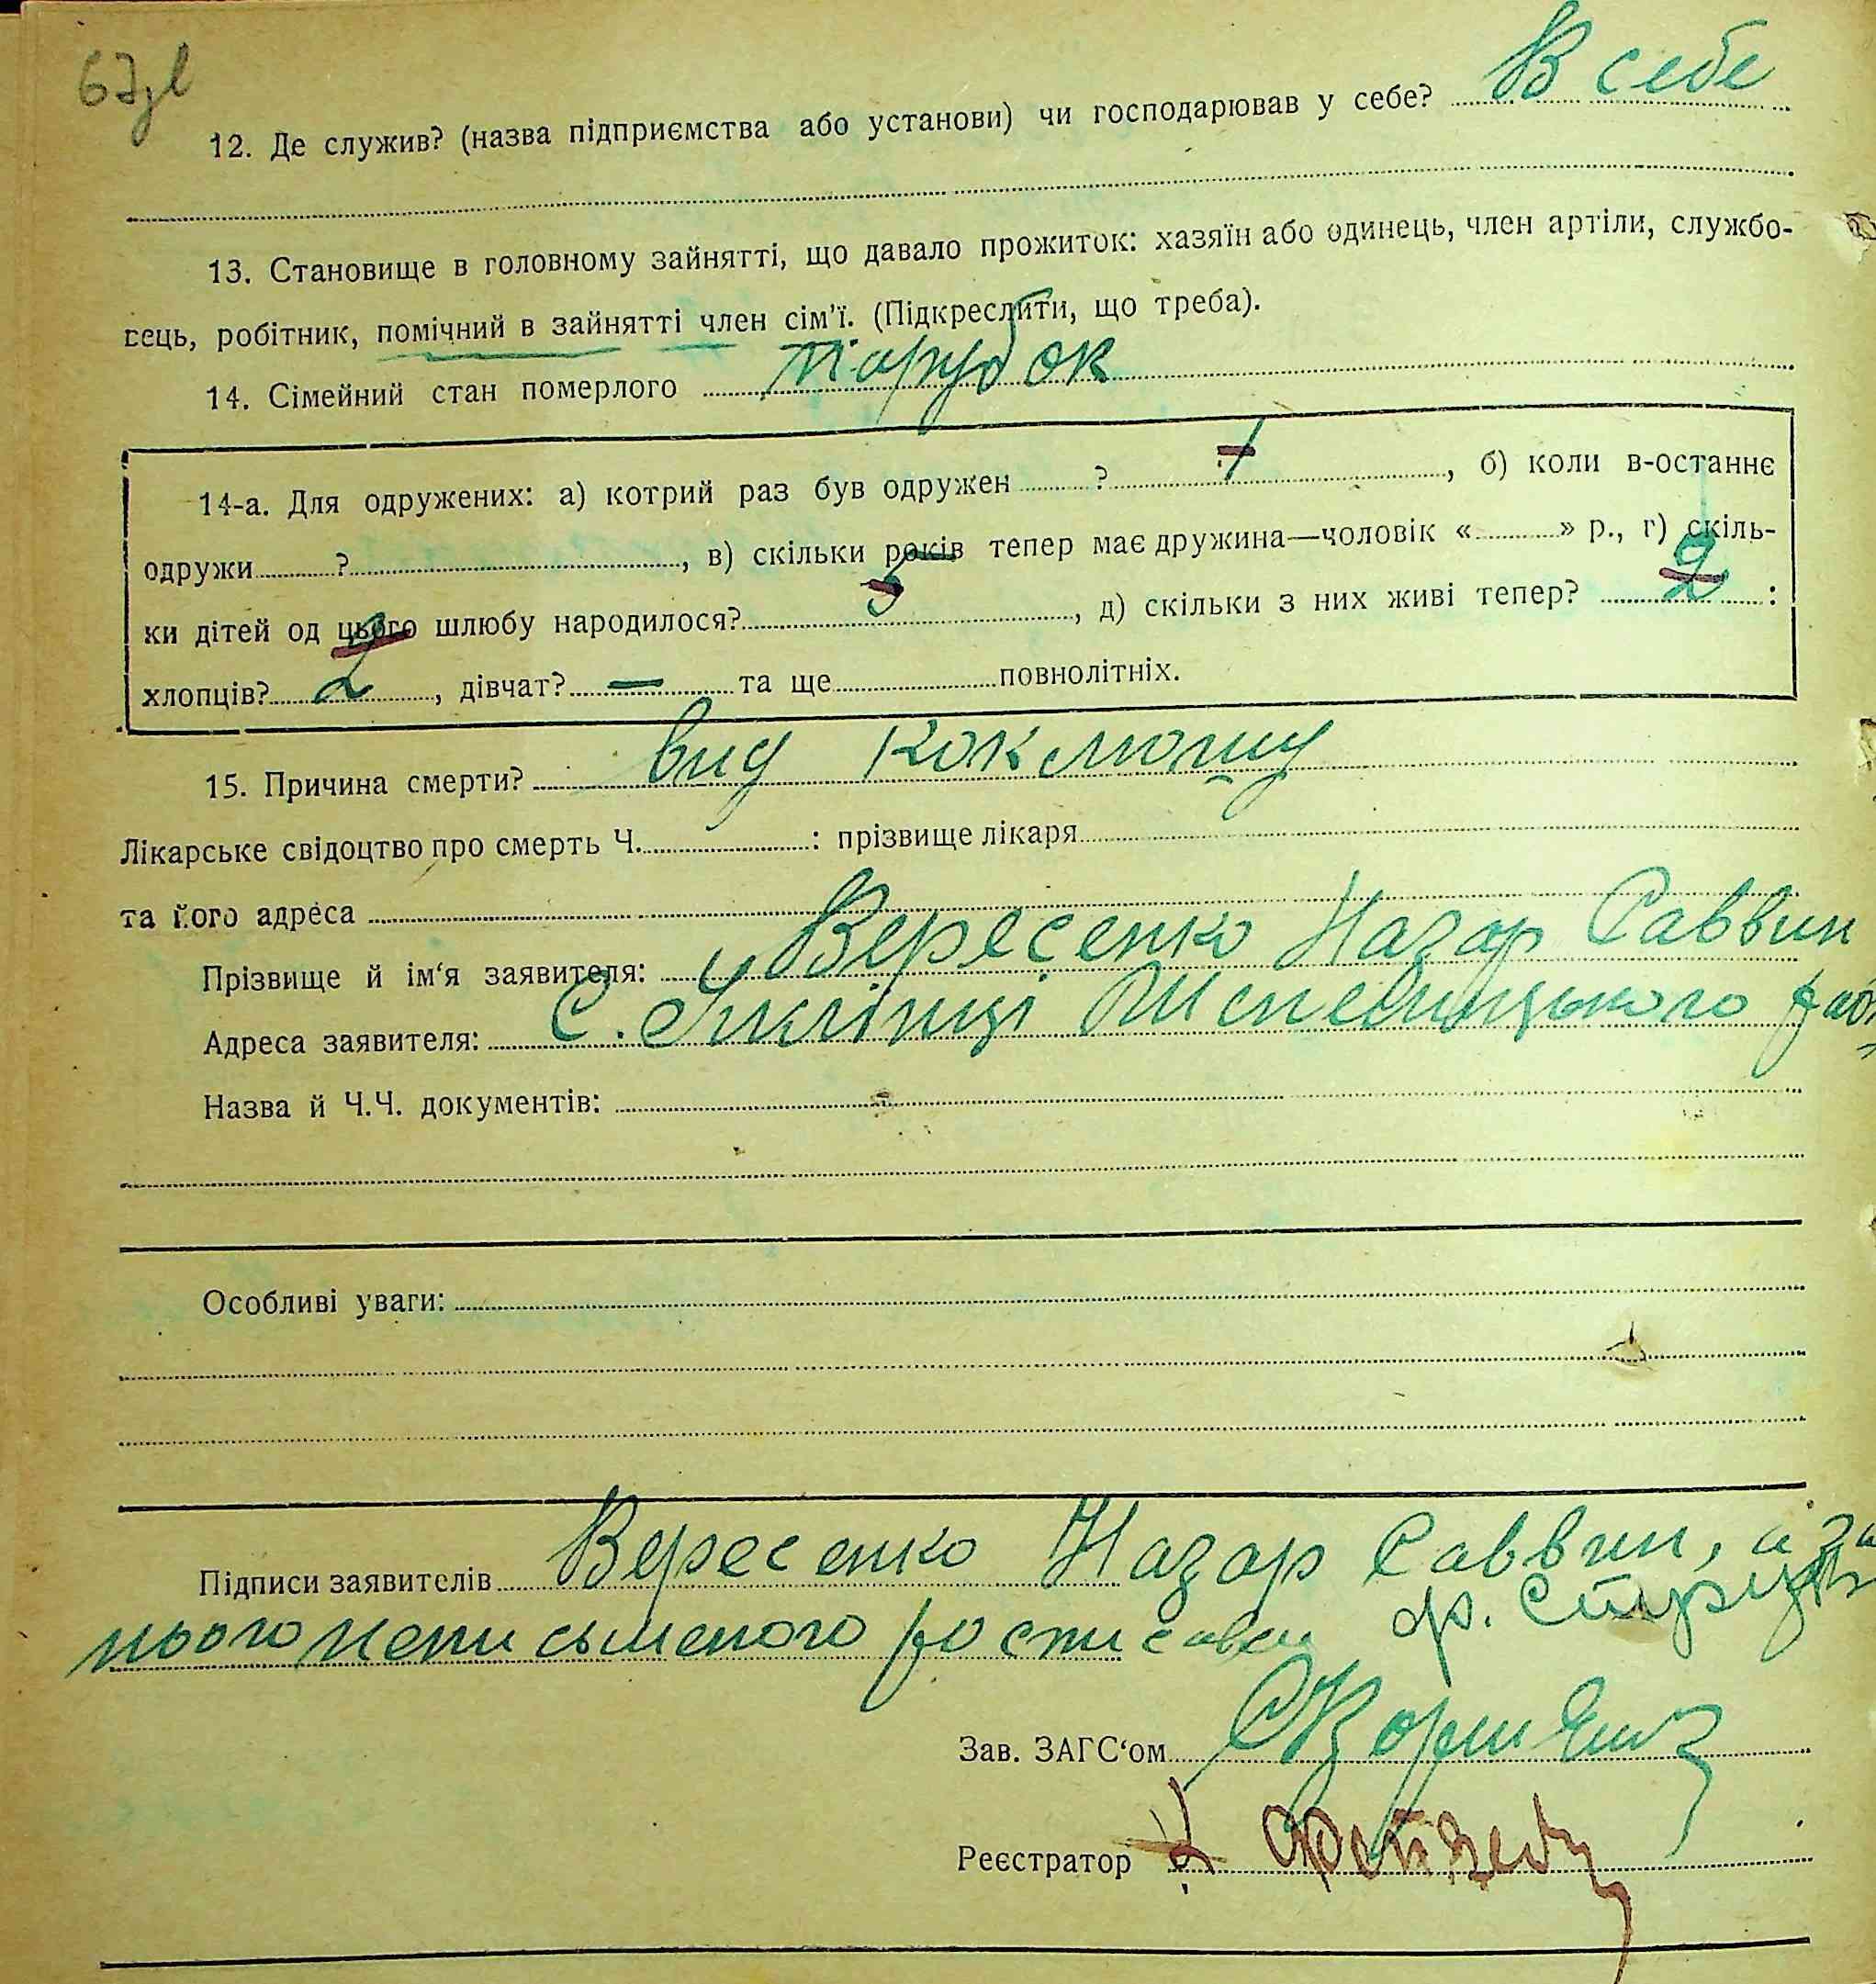 В себе
12. Де служив? (назва підприємства або установи) чи господарював у себе?
13. Становище в головному зайнятті, що давало прожиток: хазяїн або одинець, член артіли, службо-
вець, робітник, помічний в зайнятті член сім'ї. (Підкреслити, що треба).
14. Сімейний стан померлого парубок
14-а. Для одружених: а) котрий раз був одружен ? 1, б) коли в-останнє
одружи ?, в) скільки років тепер має дружина—чоловік « » р., г) скіль-
ки дітей од цього шлюбу народилося? 3, д) скільки з них живі тепер? 2 :
хлопців? 2, дівчат? — та ще повнолітніх.
15. Причина смерти? вид коклюшу
Лікарське свідоцтво про смерть Ч. : прізвище лікаря
та його адреса
Прізвище й ім'я заявителя: Вересенко Назар Саввин
Адреса заявителя: С.
Назва й Ч.Ч. документів:
Особливі уваги:
Підписи заявителів Вересенко Назар Саввин, а за
нього неписьменого росписався
Зав. ЗАГС'ом
Реєстратор